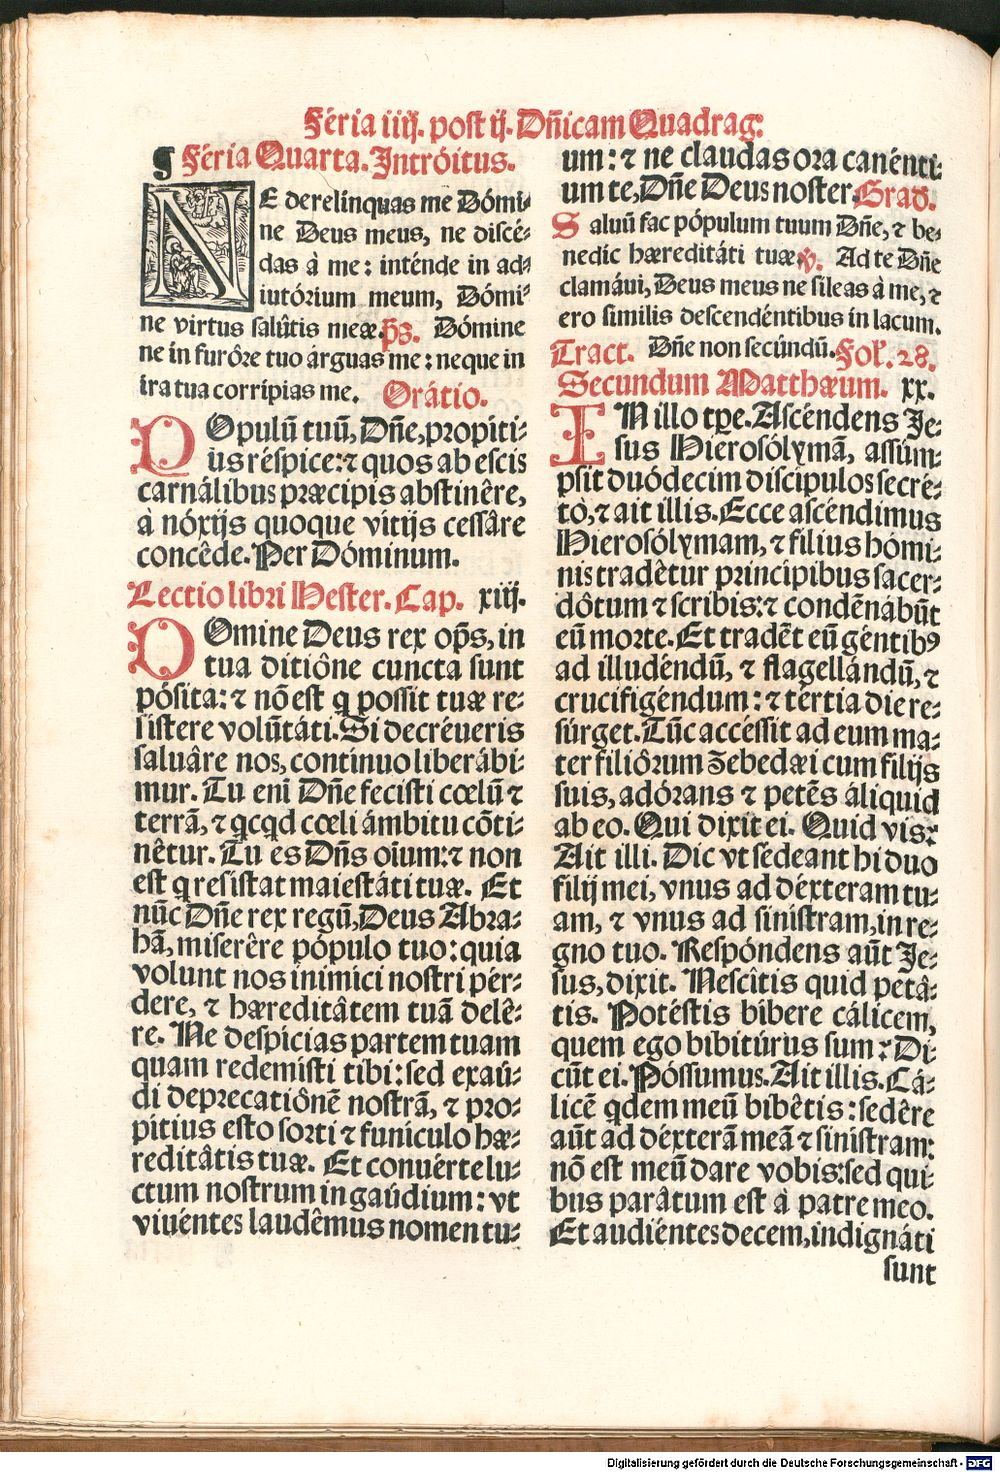 Féria iiij. post ij. Dñicam Quadrag:
¶ Féria Quarta. Intróitus.
NE derelinquas me Dómi⸗
ne Deus meus, ne discé⸗
das à me: inténde in ad⸗
iutórium meum, Dómi⸗
ne virtus salûtis meæ. ps. Dómine
ne in furóre tuo árguas me: neque in
ira tua corrípias me. Orátio.
POpulũ tuũ, Dñe, propíti⸗
us réspice: ⁊ quos ab escis
carnálibus præcipis abstinêre,
à nóxijs quoque vitijs cessâre
concêde. Per Dóminum.
Lectio libri Hester. Cap. xiij.
DOmine Deus rex op̃s, in
tua ditiône cuncta sunt
pósita: ⁊ nõ est q possit tuæ re⸗
sistere volũtáti. Si decréueris
saluâre nos, contínuo liberábi⸗
mur. Tu eni Dñe fecisti cœlũ ⁊
terrã, ⁊ qcqd cœli ámbitu cõti⸗
nêtur. Tu es Dñs oĩum: ⁊ non
est q resistat maiestáti tuæ. Et
nũc Dñe rex regũ, Deus Abra⸗
hã, miserêre pópulo tuo: quia
volunt nos inimíci nostri pér⸗
dere, ⁊ hæreditâtem tuã delê⸗
re. Ne despícias partem tuam
quam redemísti tibi: sed exaú⸗
di deprecatiônẽ nostrã, ⁊ pro⸗
pítius esto sorti ⁊ funículo hæ⸗
reditâtis tuæ. Et conuérte lu⸗
ctum nostrum in gaúdium: vt
viuéntes laudêmus nomen tu⸗
um: ⁊ ne claudas ora canénti⸗
um te, Dñe Deus noster. Grad.
Saluũ fac pópulum tuum Dñe, ⁊ be⸗
nedic hæreditáti tuæ. ℣. Ad te Dñe
clamáui, Deus meus ne síleas à me, ⁊
ero símilis descendéntibus in lacum.
Tract. Dñe non secúndũ. Fol. 28.
Secundum Matthæum. xx.
IN illo tp̃e. Ascéndens Je⸗
sus Hierosólymã, assúm⸗
psit duódecim discípulos secré⸗
tò, ⁊ ait illis. Ecce ascéndimus
Hierosólymam, ⁊ filius hómi⸗
nis tradêtur princípibus sacer⸗
dôtum ⁊ scribis: ⁊ condẽnábũt
eũ morte. Et tradẽt eũ géntibꝰ
ad illudéndũ, ⁊ flagellándũ, ⁊
crucifigéndum: ⁊ tértia die re⸗
súrget. Tũc accéssit ad eum ma⸗
ter filiôrum Zebedæi cum filijs
suis, adórans ⁊ petẽs áliquid
ab eo. Qui dixit ei. Quid vis?
Ait illi. Dic vt sedeant hi duo
filij mei, vnus ad déxteram tu⸗
am, ⁊ vnus ad sinístram, in re⸗
gno tuo. Respóndens aũt Je⸗
sus, dixit. Nescîtis quid petâ⸗
tis. Potéstis bíbere cálicem,
quem ego bibitúrus sum? Di⸗
cũt ei. Póssumus. Ait illis. Cá⸗
licẽ qdem meũ bibêtis: sedêre
aũt ad déxterã meã ⁊ sinístram:
nõ est meũ dare vobis: sed qui⸗
bus parâtum est à patre meo.
Et audiéntes decem, indignáti
sunt
Digitalisierung gefördert durch die Deutsche Forschungsgemeinschaft - DFG